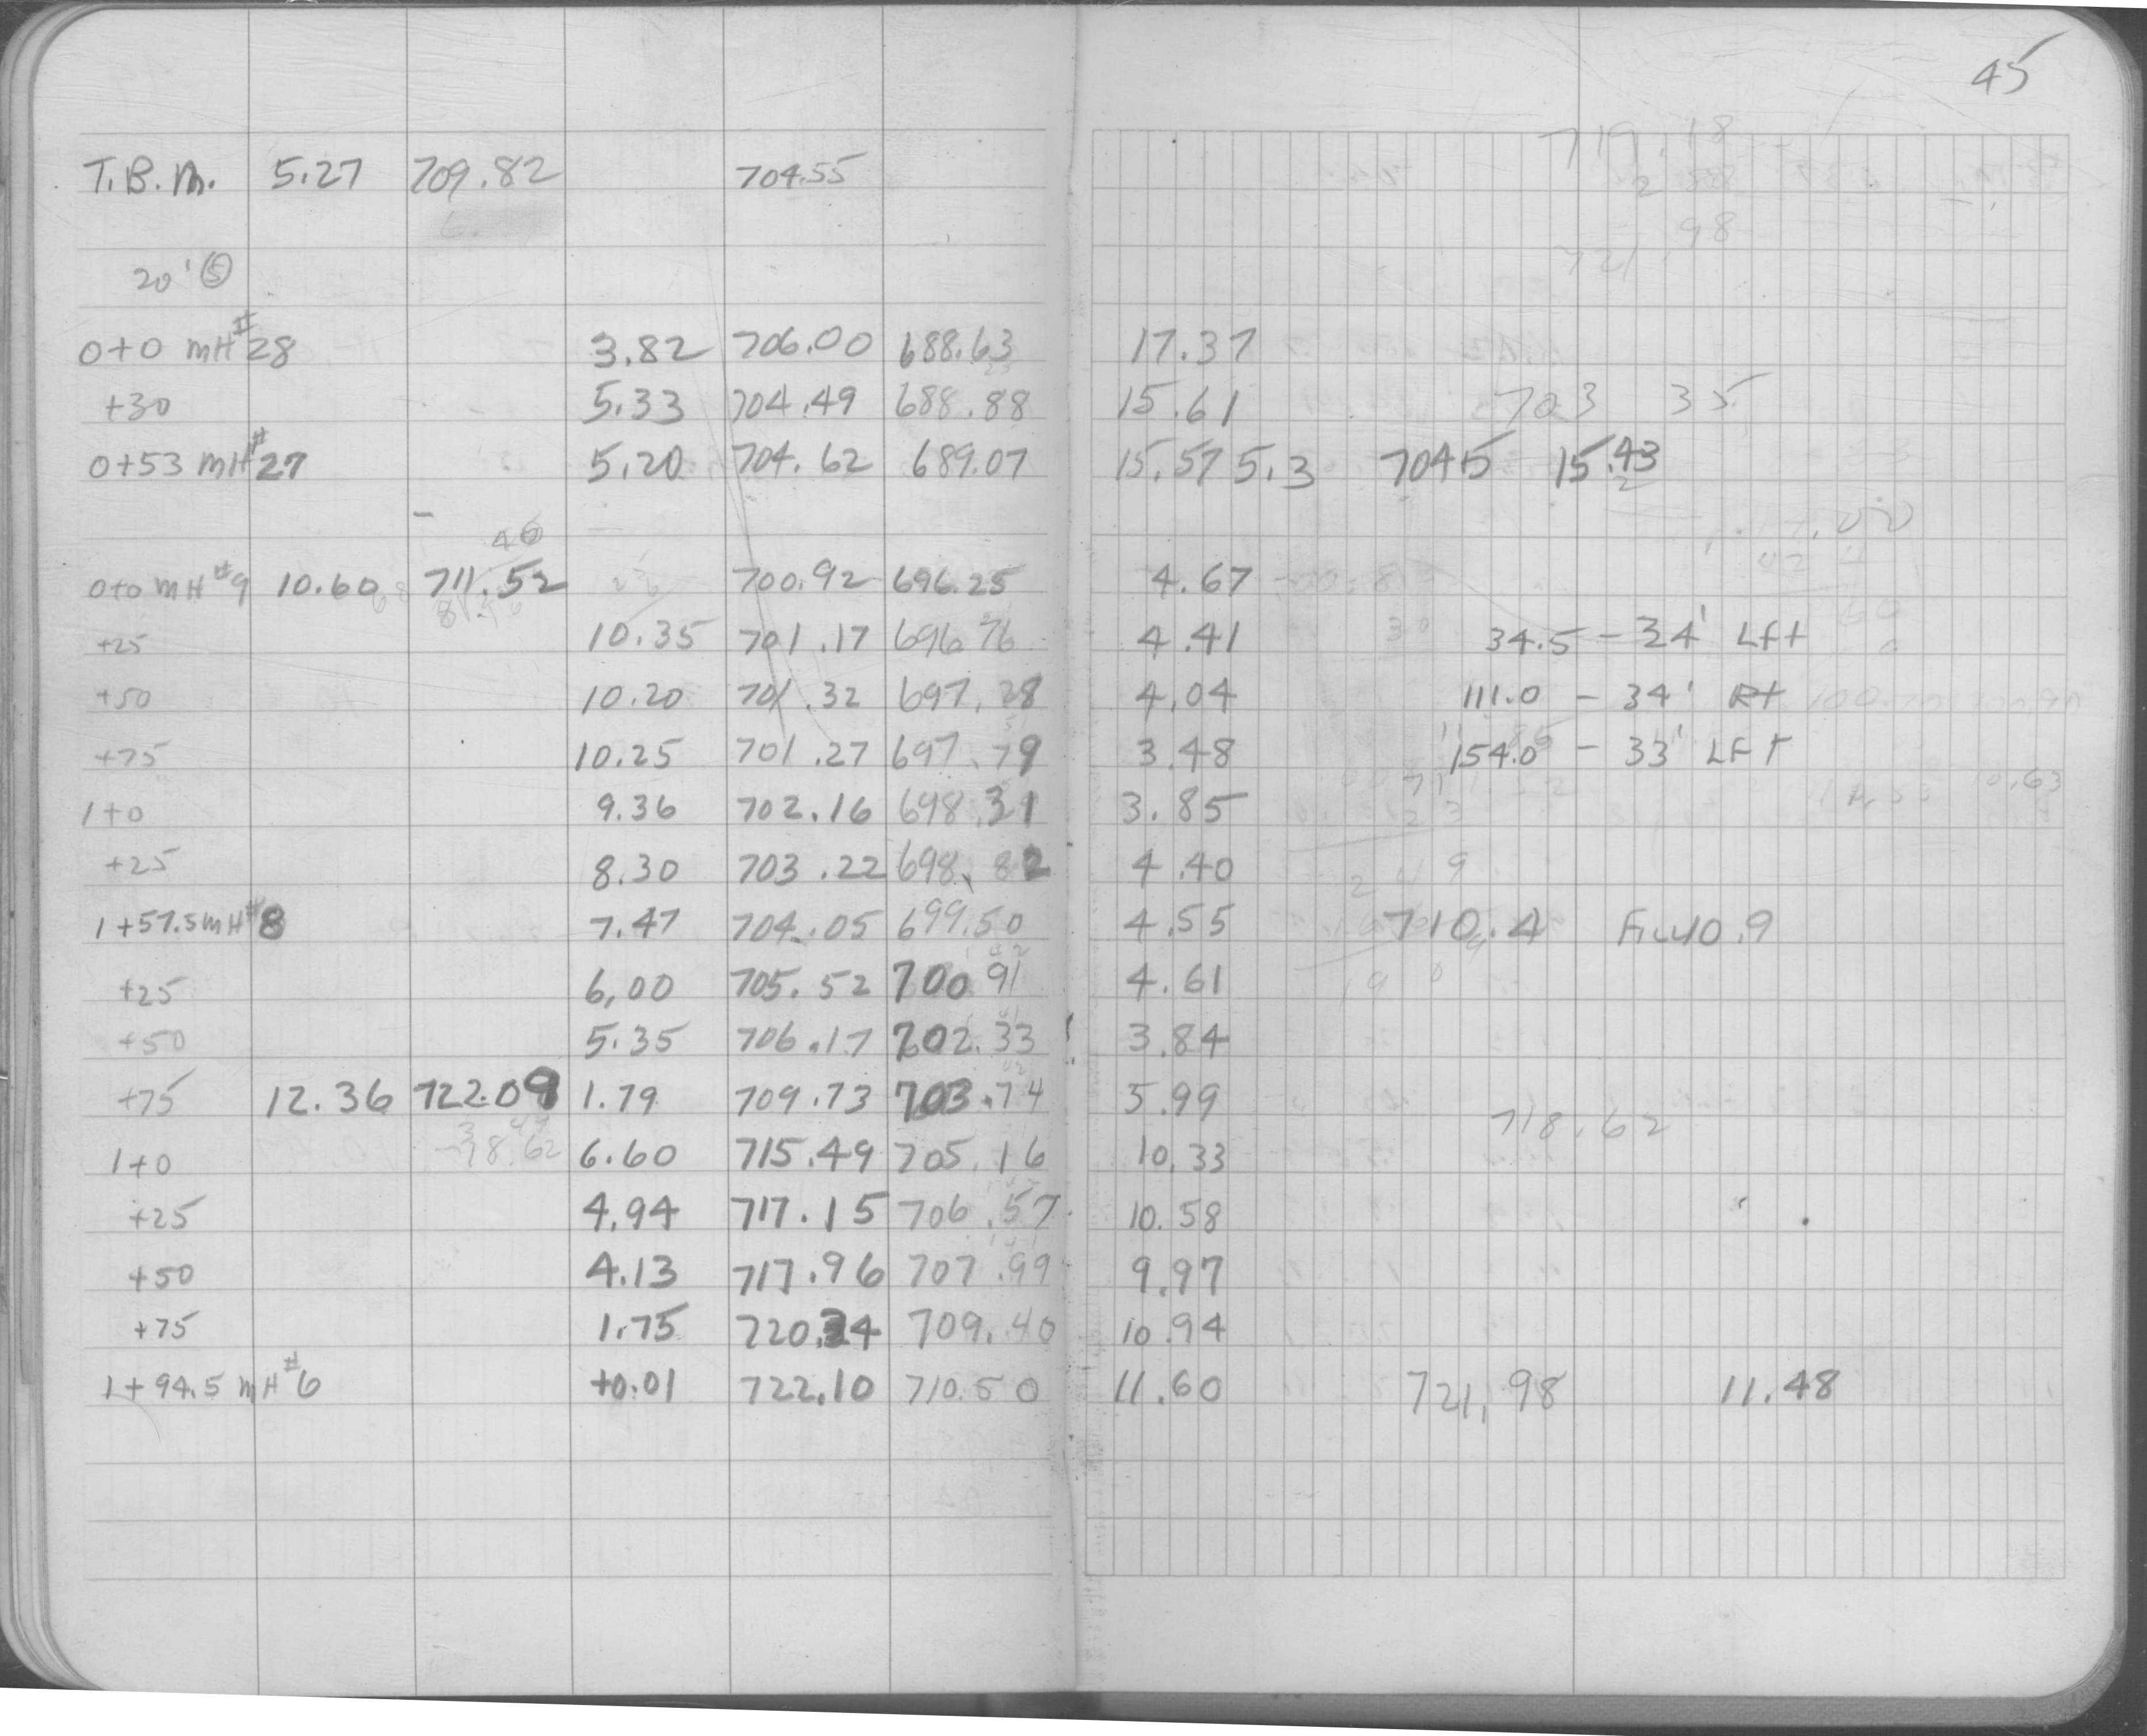 45
719.18
T.B.M. 5.27 709.82 704.55
2 88
721.98
20' ⑤
0+0 MH #28 3.82 706.00 688.63 17.37
+30 5.33 704.49 688.88 15.61 703 35
0+53 MH #27 5.20 704.62 689.07 15.57 5.3 704.5 15.43
46
0+0 MH #9 10.60 711.52 700.92 696.25 4.67
+25 10.35 701.17 696.76 4.41 34.5 - 34' Lft
+50 10.20 701.32 697.28 4.04 111.0 - 34' Rt
+75 10.25 701.27 697.79 3.48 154.0 - 33' LFT
1+0 9.36 702.16 698.31 3.85
+25 8.30 703.22 698.82 4.40
1+57.5 MH #8 7.47 704.05 699.50 4.55 710.4 Fill 10.9
+25 6.00 705.52 700.91 4.61
+50 5.35 706.17 702.33 3.84
+75 12.36 722.09 1.79 709.73 703.74 5.99
718.62
1+0 6.60 715.49 705.16 10.33
+25 4.94 717.15 706.57 10.58
+50 4.13 717.96 707.99 9.97
+75 1.75 720.34 709.40 10.94
1+94.5 MH #6 +0.01 722.10 710.50 11.60 721.98 11.48